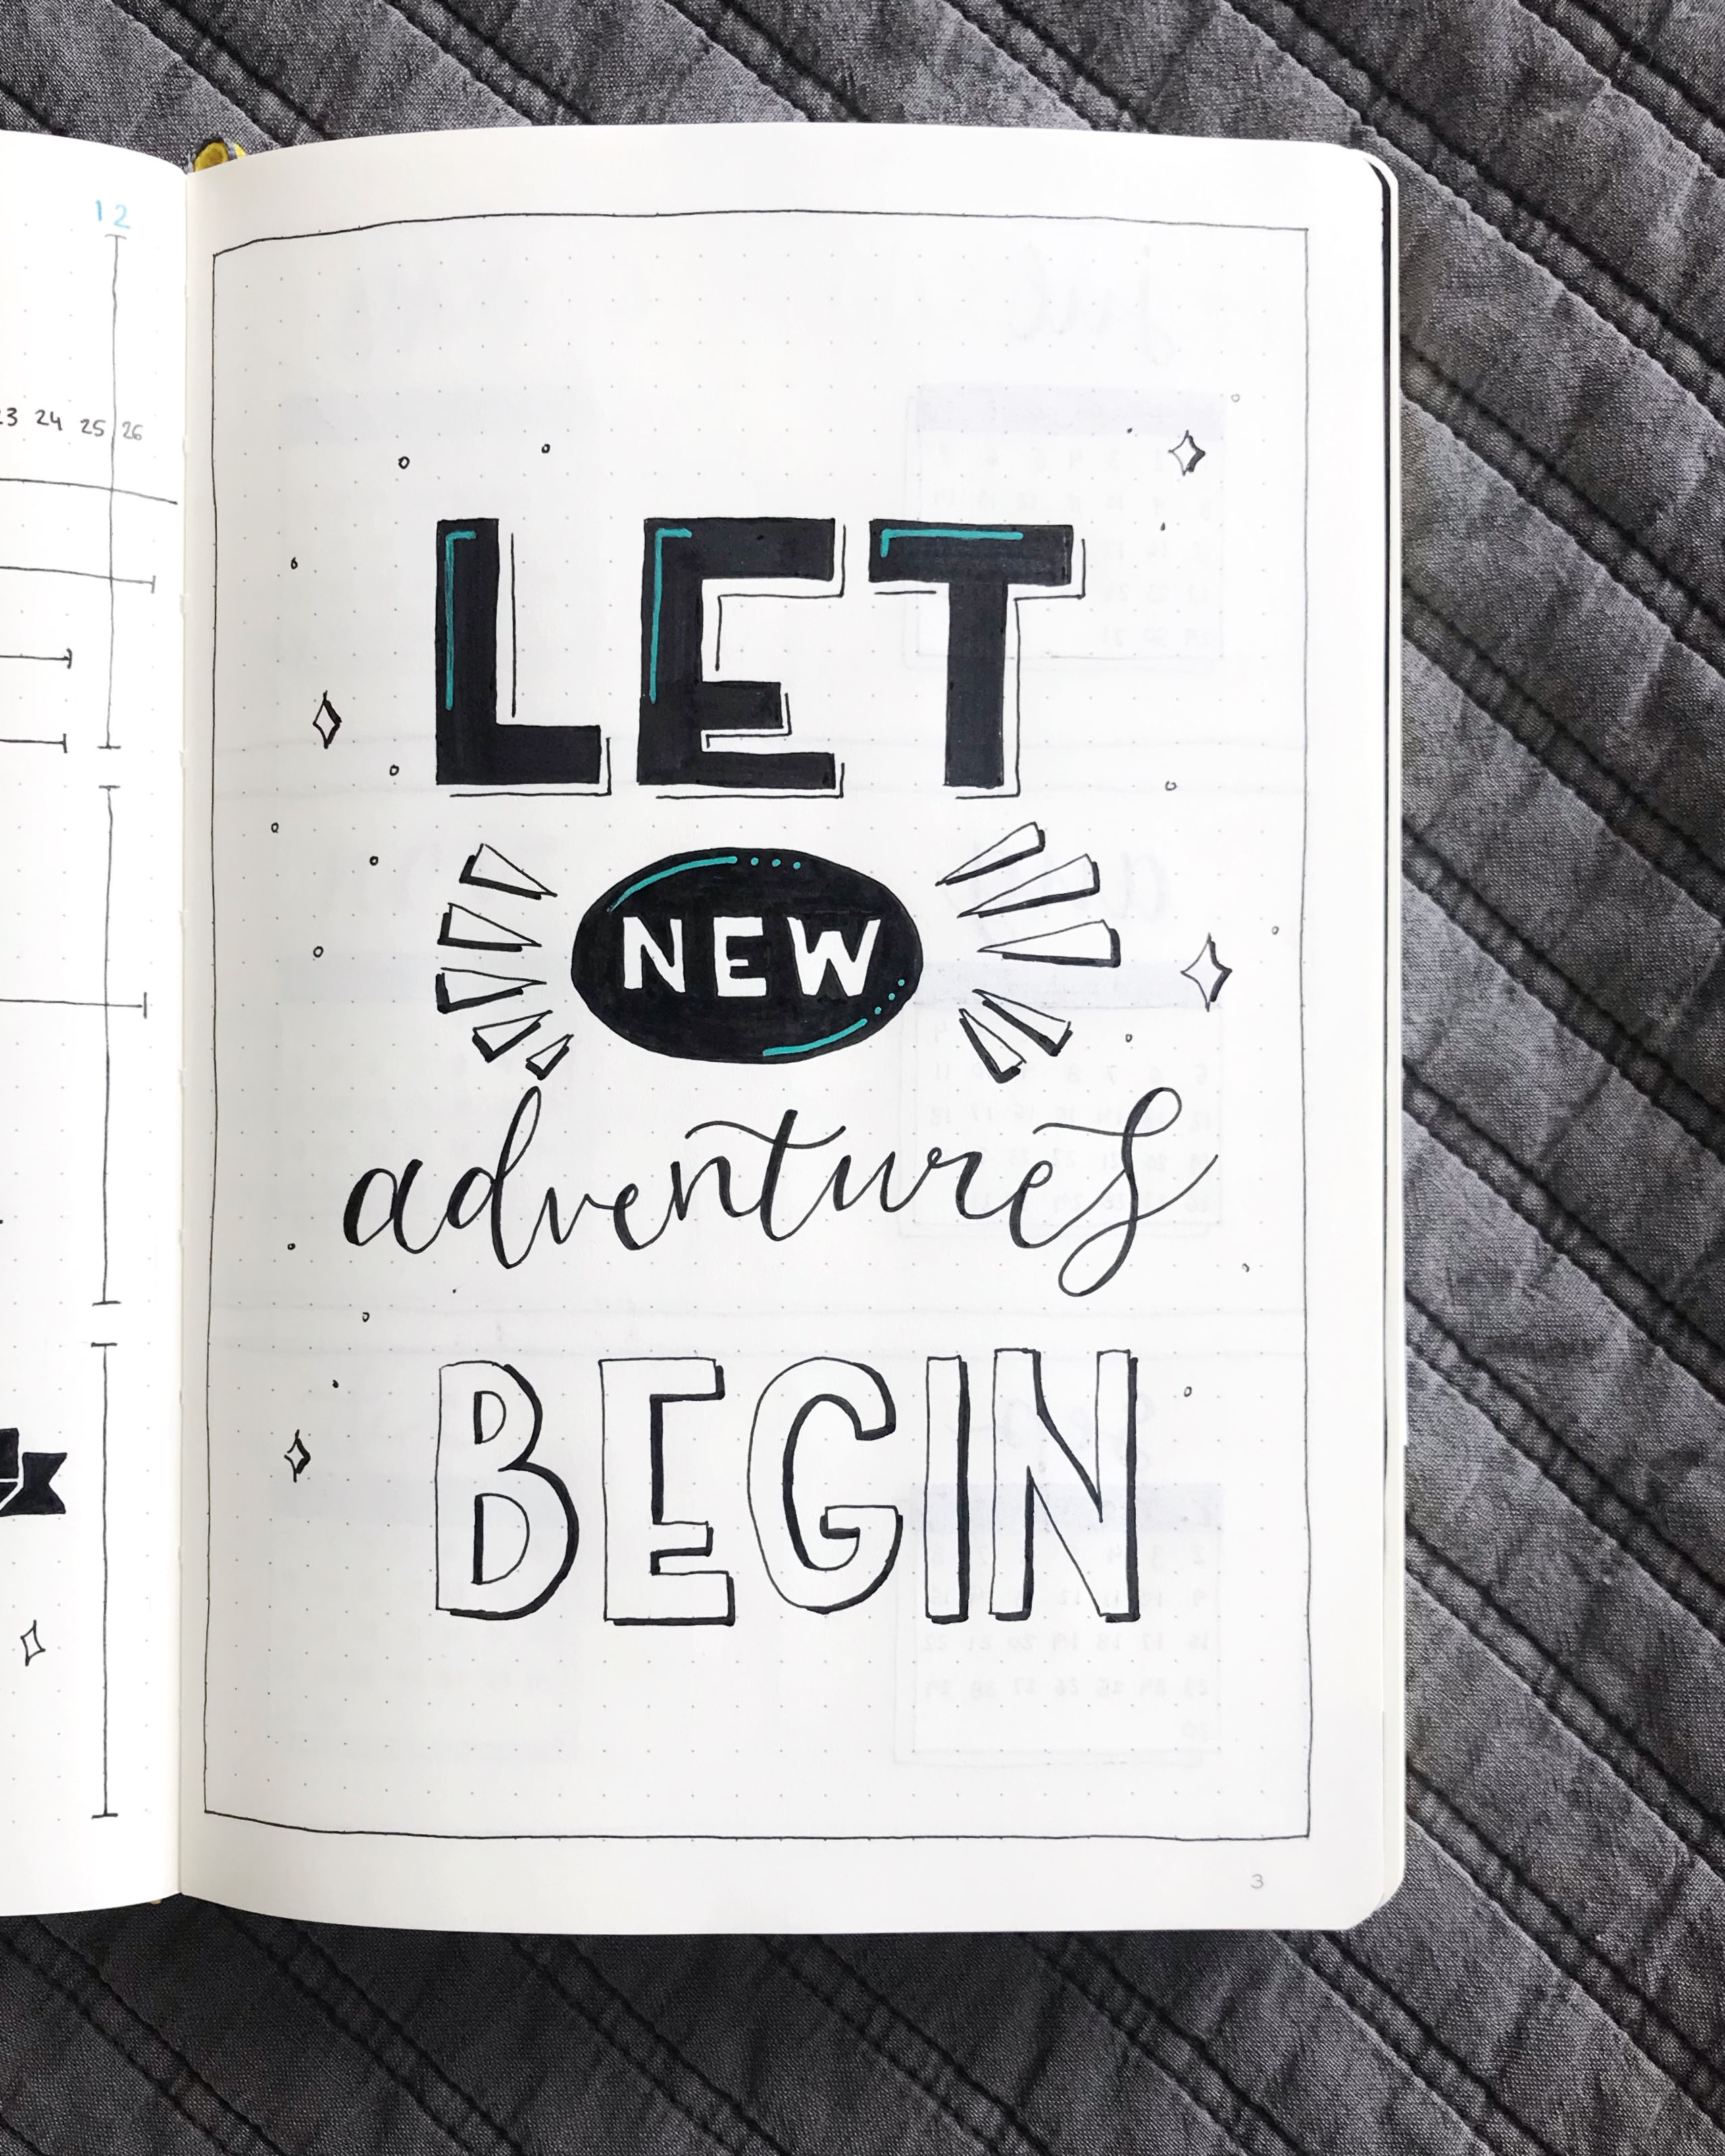 12
23 24 25 26
LET
NEW
adventures
BEGIN
3